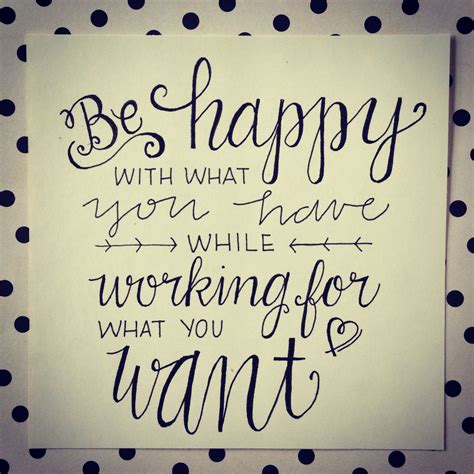 Be happy
WITH WHAT
you have
WHILE
working for
WHAT YOU
want